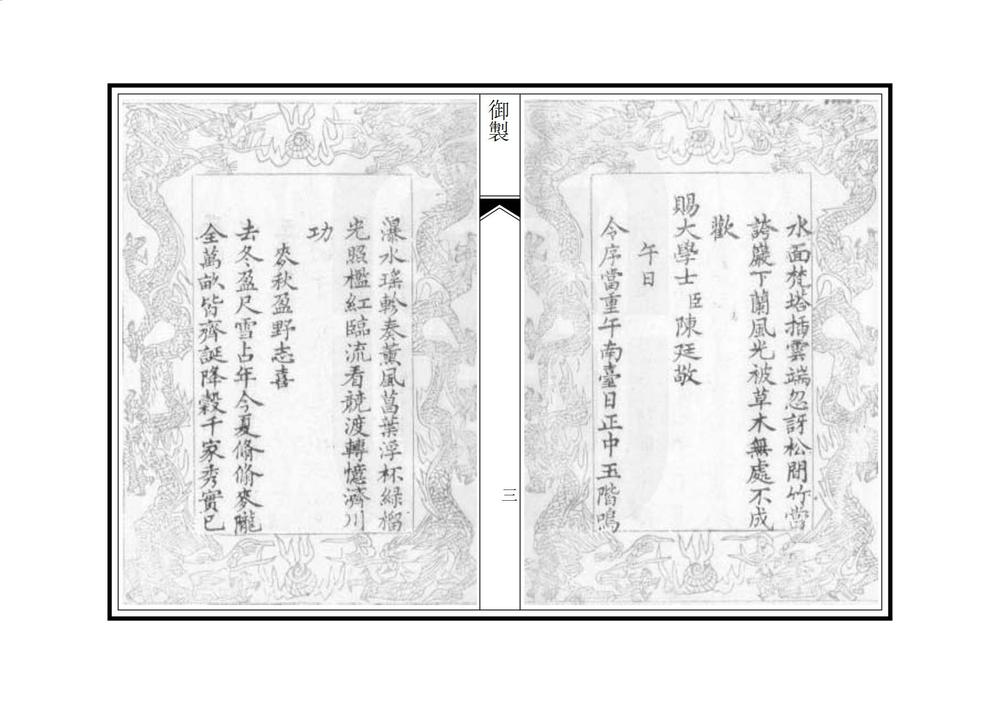 水面梵塔插雲端忽訝松間竹當
誇巖下蘭風光被草木無處不成
歡
賜大學士臣陳廷敬
午日
令序當重午南臺日正中玉階鳴
御製
三
瀑水瑤軫奏薰風菖葉浮杯綠榴
光照檻紅臨流看競渡轉憶濟川
功
麥秋盈野志喜
去冬盈尺雪占年今夏翛翛麥隴
全萬畝皆齊誕降穀千家秀實已